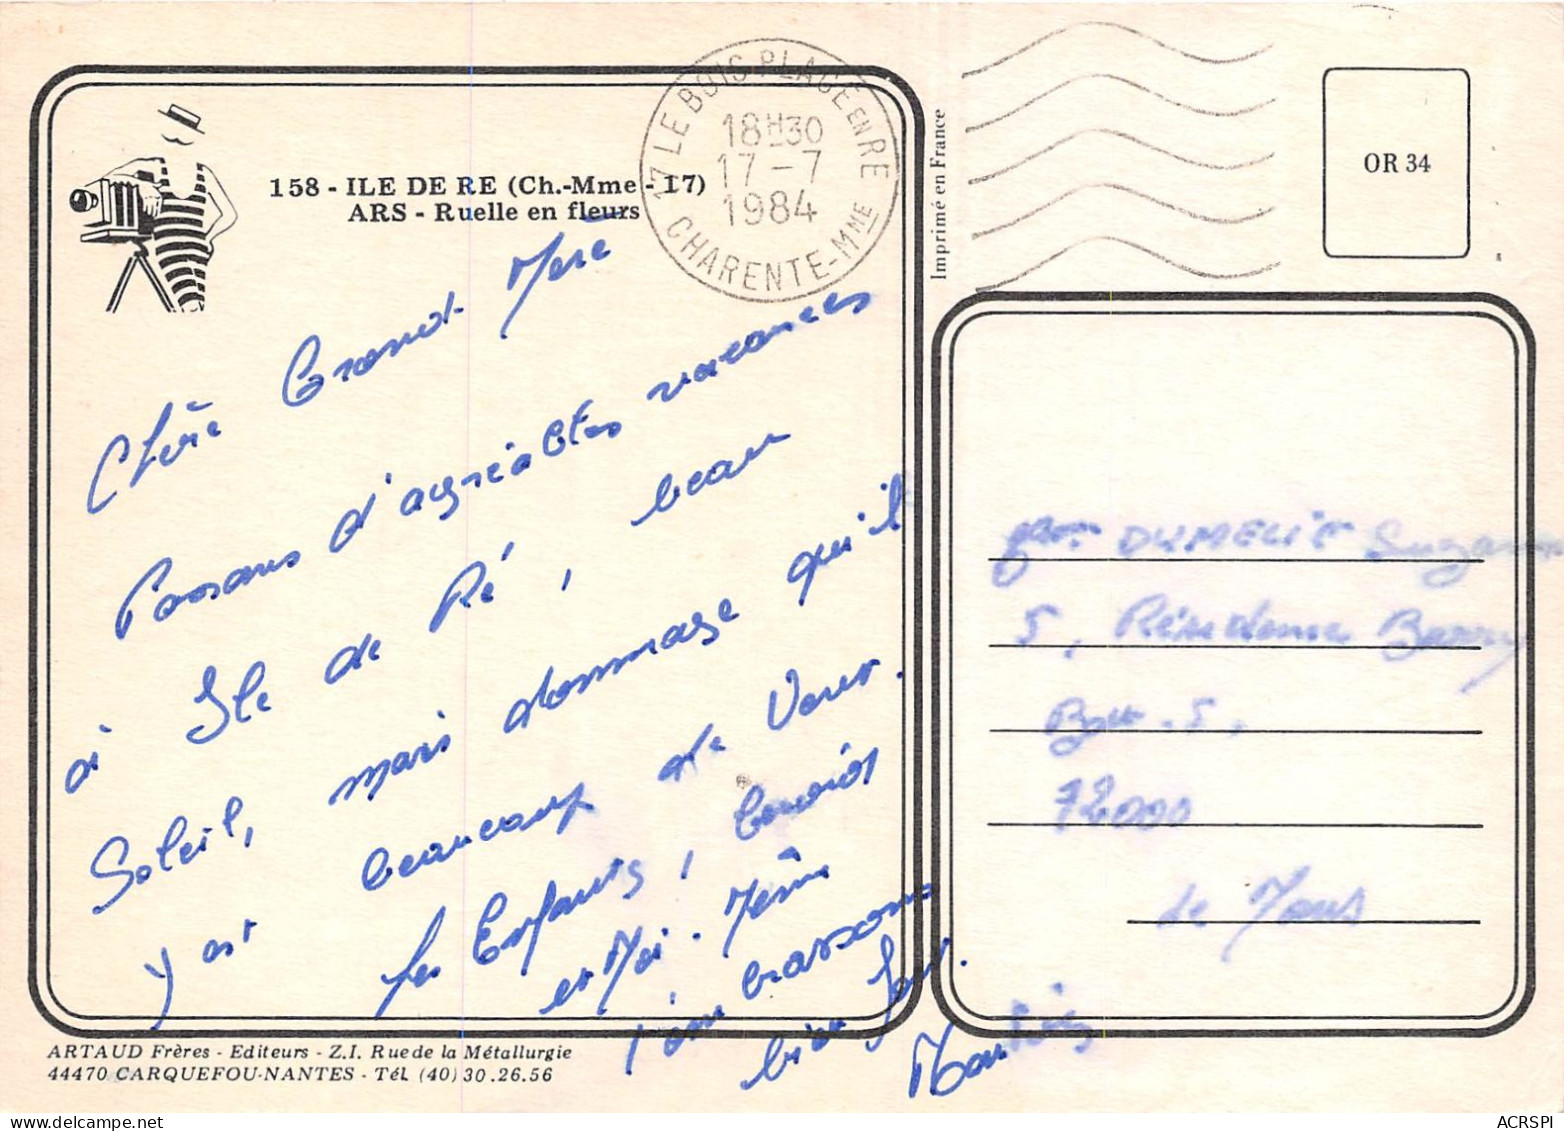 158 - ILE DE RE (Ch.-Mme - 17)
ARS - Ruelle en fleurs
17 LE BOIS PLAGE EN RE
18H30
17-7
1984
CHARENTE-MME
Imprimé en France
OR 34
Chère Grand-Mère
Passons d'agréables vacances
à Ile de Ré, beau
Soleil, mais dommage qu'il
y est beaucoup de Vent.
Les Enfants,
et Moi-Même
t'embrassons
bien fort.
Suzanne
5, Résidence
Bat. 5,
72000
Le Mans
ARTAUD Frères - Editeurs - Z.I. Rue de la Métallurgie
44470 CARQUEFOU-NANTES - Tél. (40) 30.26.56
ACRSPI